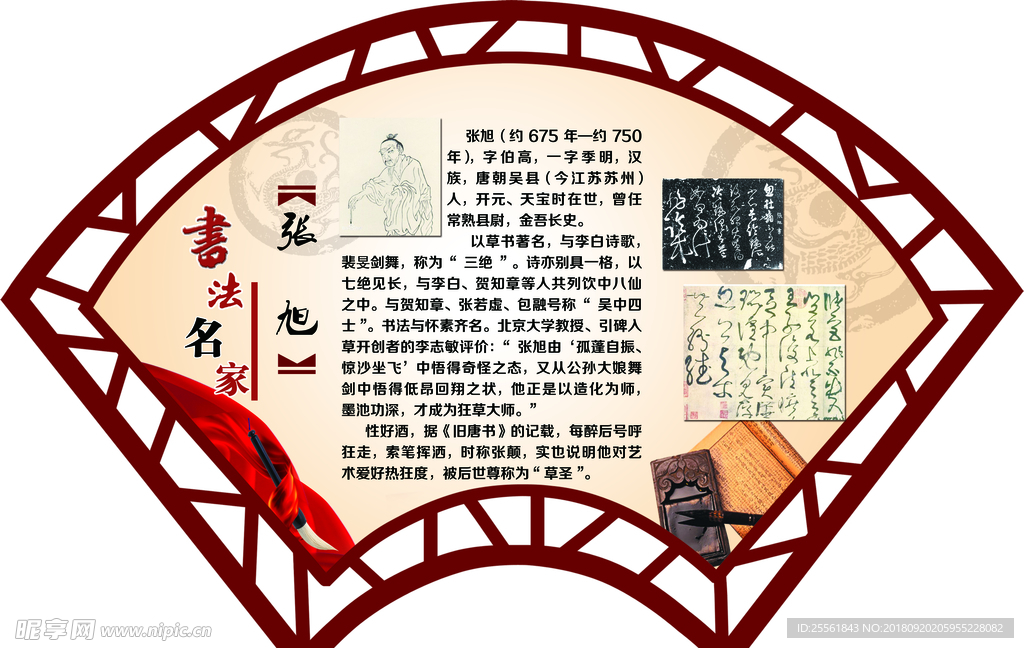 書法名家
【张旭】
张旭（约 675 年—约 750
年），字伯高，一字季明，汉
族，唐朝吴县（今江苏苏州）
人，开元、天宝时在世，曾任
常熟县尉，金吾长史。
以草书著名，与李白诗歌，
裴旻剑舞，称为“ 三绝 ”。诗亦别具一格，以
七绝见长，与李白、贺知章等人共列饮中八仙
之中。与贺知章、张若虚、包融号称“ 吴中四
士”。书法与怀素齐名。北京大学教授、引碑入
草开创者的李志敏评价：“ 张旭由‘孤蓬自振、
惊沙坐飞’中悟得奇怪之态，又从公孙大娘舞
剑中悟得低昂回翔之状，他正是以造化为师，
墨池功深，才成为狂草大师。”
性好酒，据《旧唐书》的记载，每醉后号呼
狂走，索笔挥洒，时称张颠，实也说明他对艺
术爱好热狂度，被后世尊称为“ 草圣 ”。
昵享网 www.nipic.cn
ID:25561843 NO:20180920205955228082